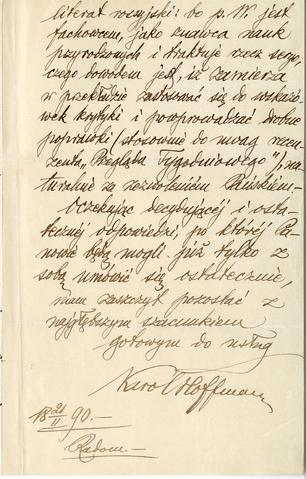 literat rosyjski: bo p. W. jest
fachowcem, jako znawca nauk
przyrodzonych i traktuje rzecz seryo,
czego dowodem jest, iż zamierza
w przekładzie zastosować się do wskazó-
wek krytyki i powprowadzać drobne
poprawki (stosownie do uwag recen-
zenta „Przeglądu Tygodniowego”), na-
turalnie za zezwoleniem Pańskiem.—
Oczekując decydującej i osta-
tecznej odpowiedzi, po której Pa-
nowie będą mogli już tylko z
sobą umówić się ostatecznie,
mam zaszczyt pozostać z
najgłębszym szacunkiem
gotowym do usług
Karol Hoffman
18 21/II 90.—
Radom.—